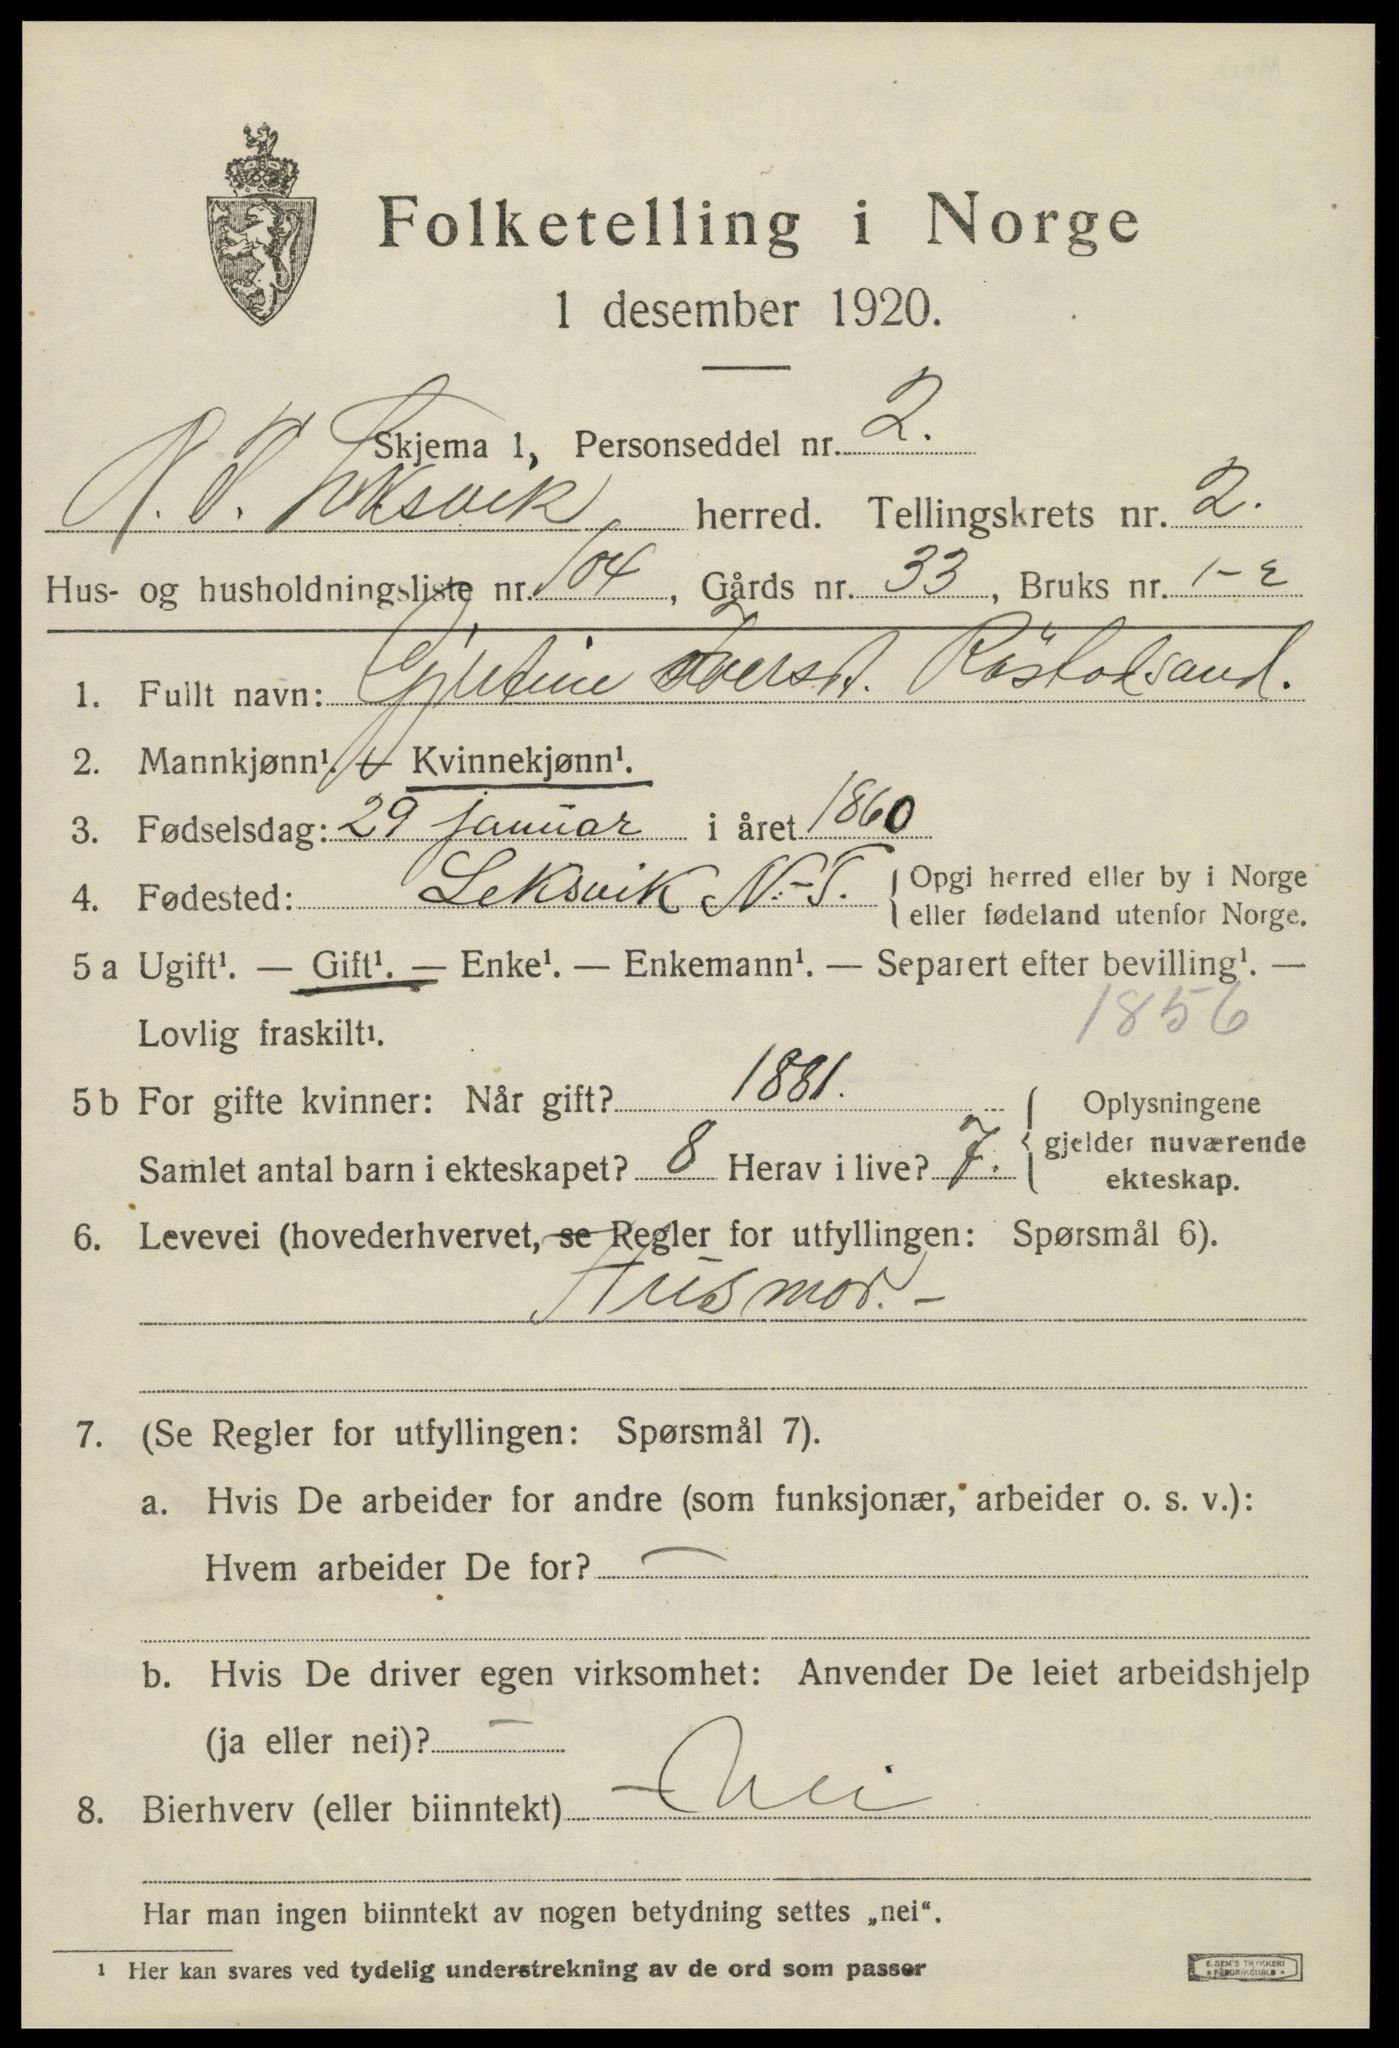 Folketelling i Norge
1 desember 1920.
Skjema 1, Personseddel nr. 2.
N. T. Leksvik herred. Tellingskrets nr. 2.
Hus- og husholdningsliste nr. 104, Gårds nr. 33, Bruks nr. 1-2
1. Fullt navn: Iversd. Röstadsand.
2. Mannkjønn¹. — Kvinnekjønn¹.
3. Fødselsdag: 29 januar i året 1860
4. Fødested: Leksvik N.-T. Opgi herred eller by i Norge
eller fødeland utenfor Norge.
5 a Ugift¹. — Gift¹. — Enke¹. — Enkemann¹. — Separert efter bevilling¹. —
Lovlig fraskilt¹. 1856
5 b For gifte kvinner: Når gift? 1881. Oplysningene
gjelder nuværende
Samlet antal barn i ekteskapet? 8 Herav i live? 7. ekteskap.
6. Levevei (hovederhvervet, se Regler for utfyllingen: Spørsmål 6).
Husmor. -
7. (Se Regler for utfyllingen: Spørsmål 7).
a. Hvis De arbeider for andre (som funksjonær, arbeider o. s. v.):
Hvem arbeider De for? —
b. Hvis De driver egen virksomhet: Anvender De leiet arbeidshjelp
(ja eller nei)? —
8. Bierhverv (eller biinntekt) - Nei
Har man ingen biinntekt av nogen betydning settes „nei“.
¹ Her kan svares ved tydelig understrekning av de ord som passer
E. SEM'S TRYKKERI
FREDRIKSHALD